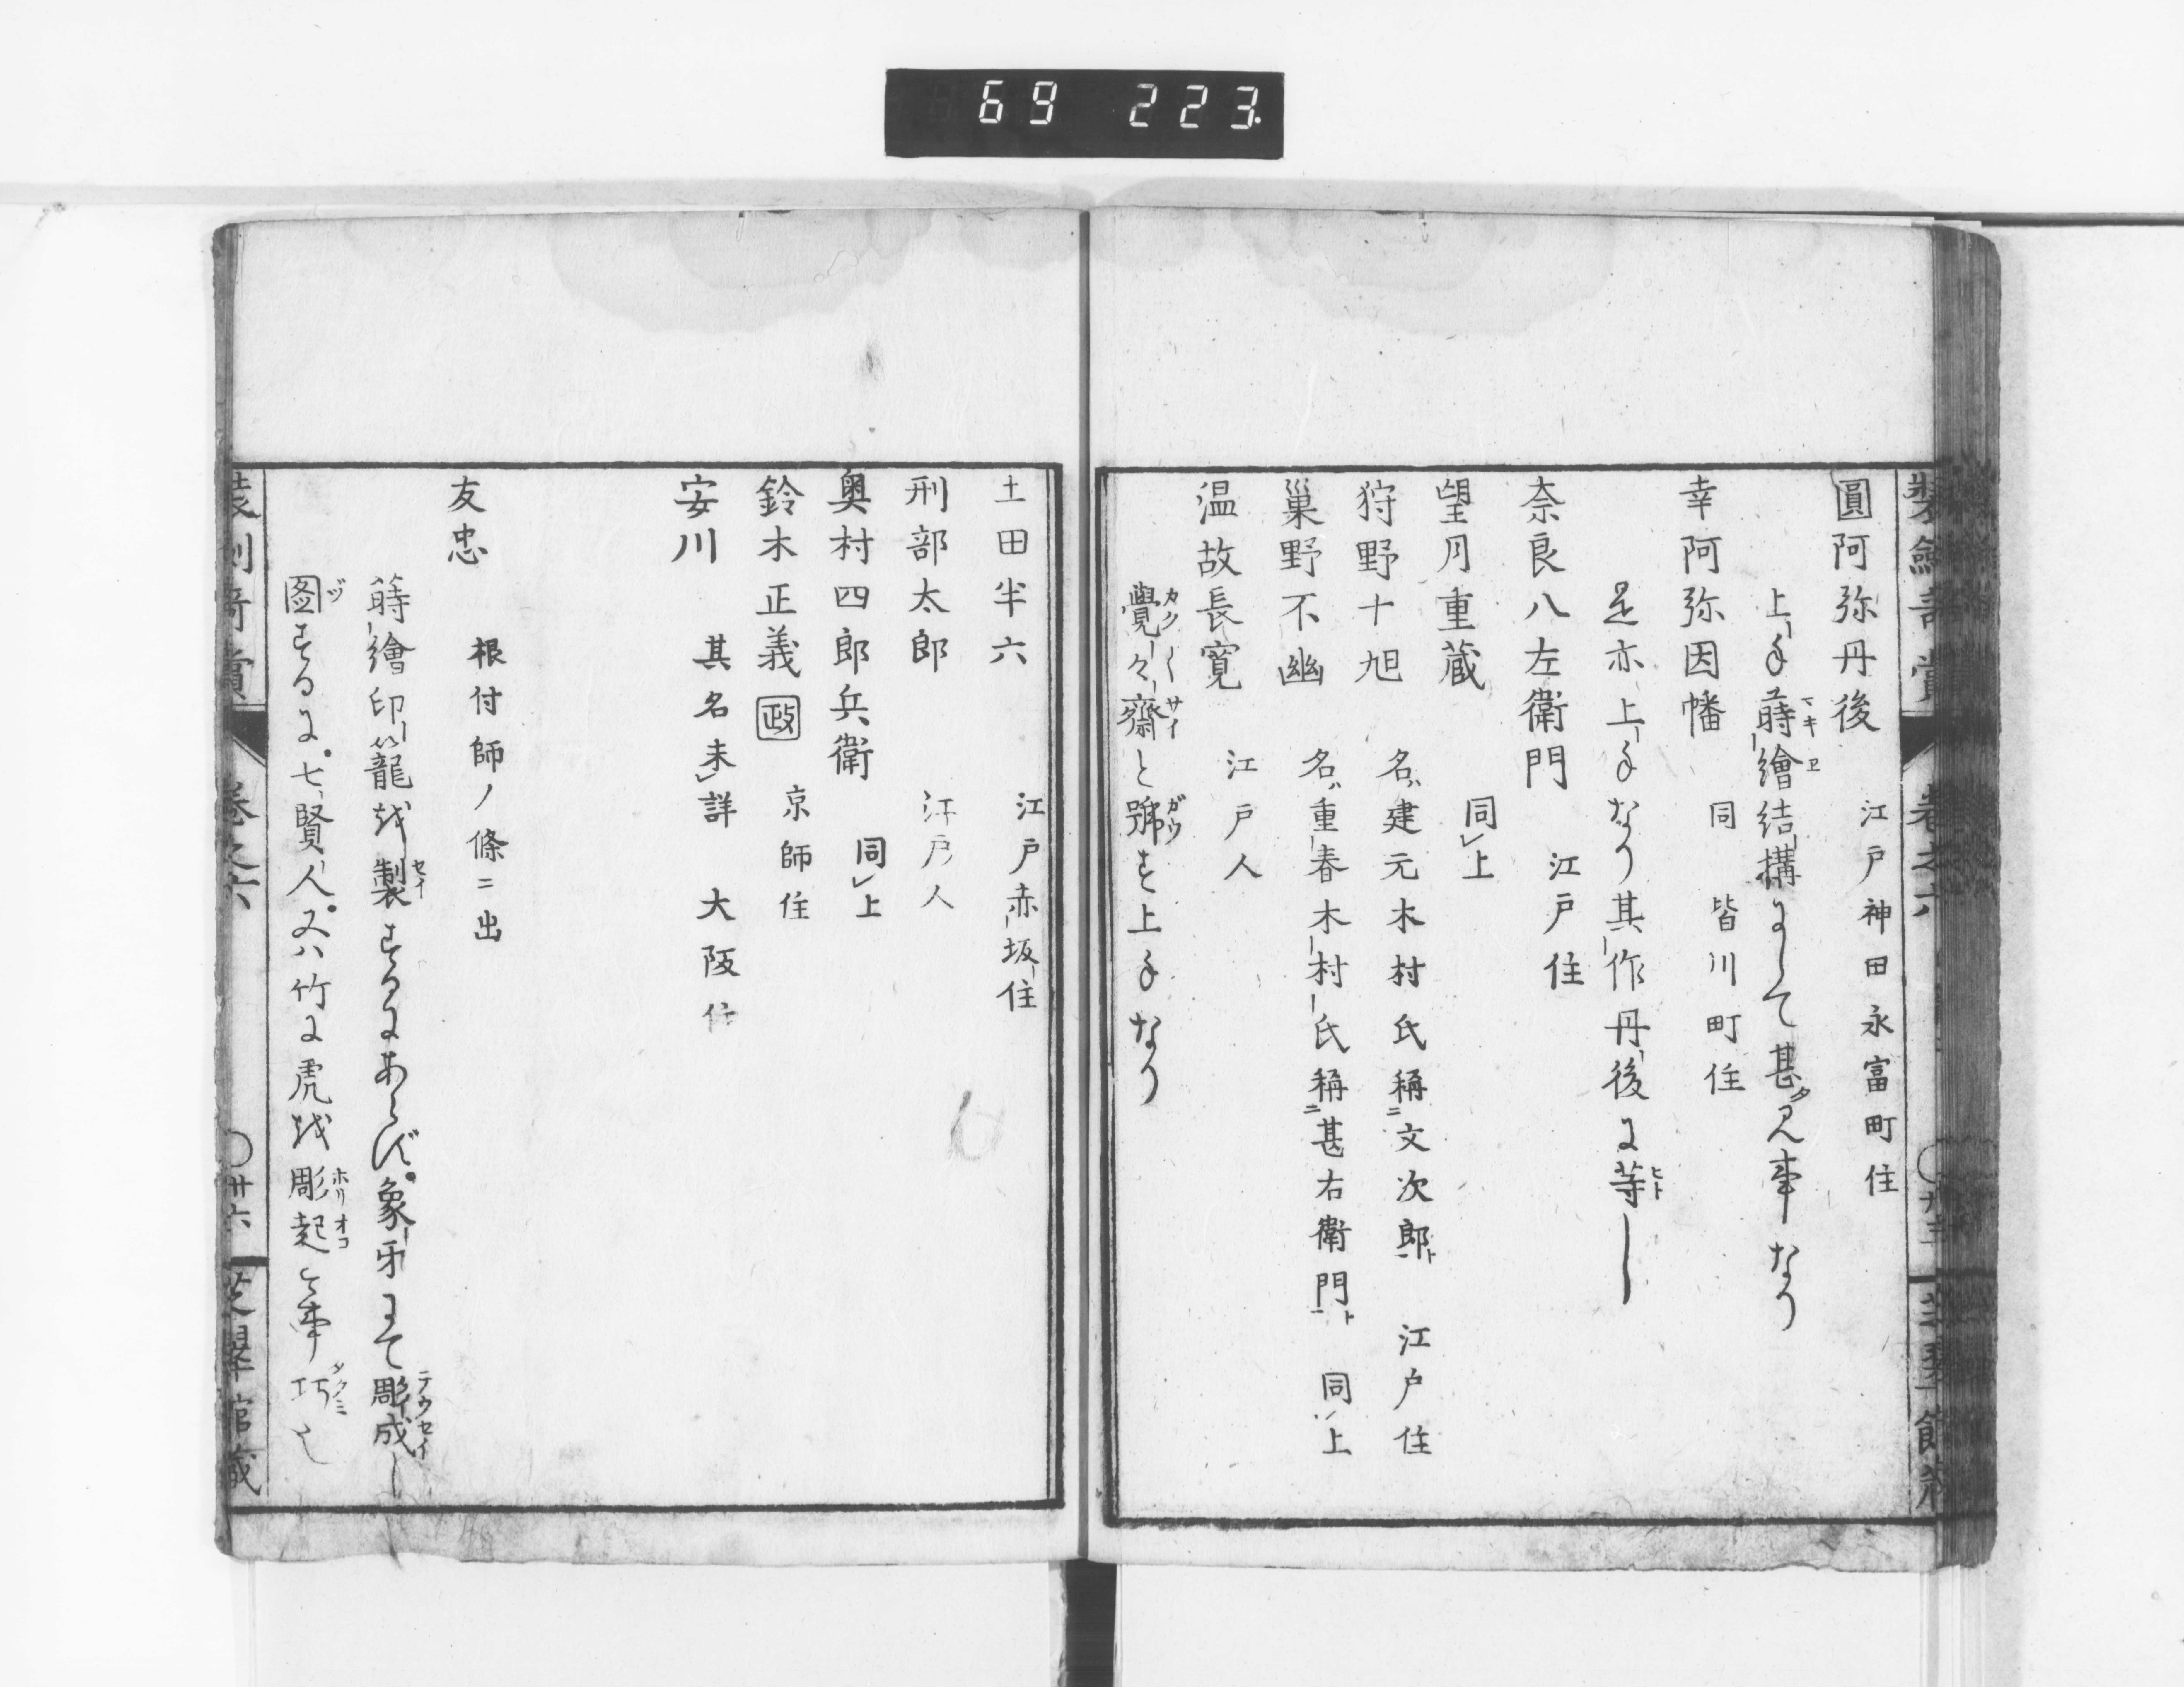 69 223
圓阿弥丹後 江戸神田永富町住
上手蒔繪結構にして甚タ見事なり
幸阿弥因幡 同皆川町住
是亦上手なり其作丹後に等し
奈良八左衛門 江戸住
望月重蔵 同上
狩野十旭 名ハ建元木村氏稱ニ文次郎ト 江戸住
巣野不幽 名ハ重春木村氏稱ニ甚右衛門ト 同上
温故長寛 江戸人
覺々齋と號す上手なり
土田半六 江戸赤坂住
刑部太郎 江戸人
奥村四郎兵衛 同上
鈴木正義 政 京師住
安川 其名未詳 大阪住
友忠 根付師ノ條ニ出
蒔繪印籠越製するにあらず象牙にて彫成し
图するに七賢人又ハ竹に虎越彫起
巻之六
芝翠館蔵